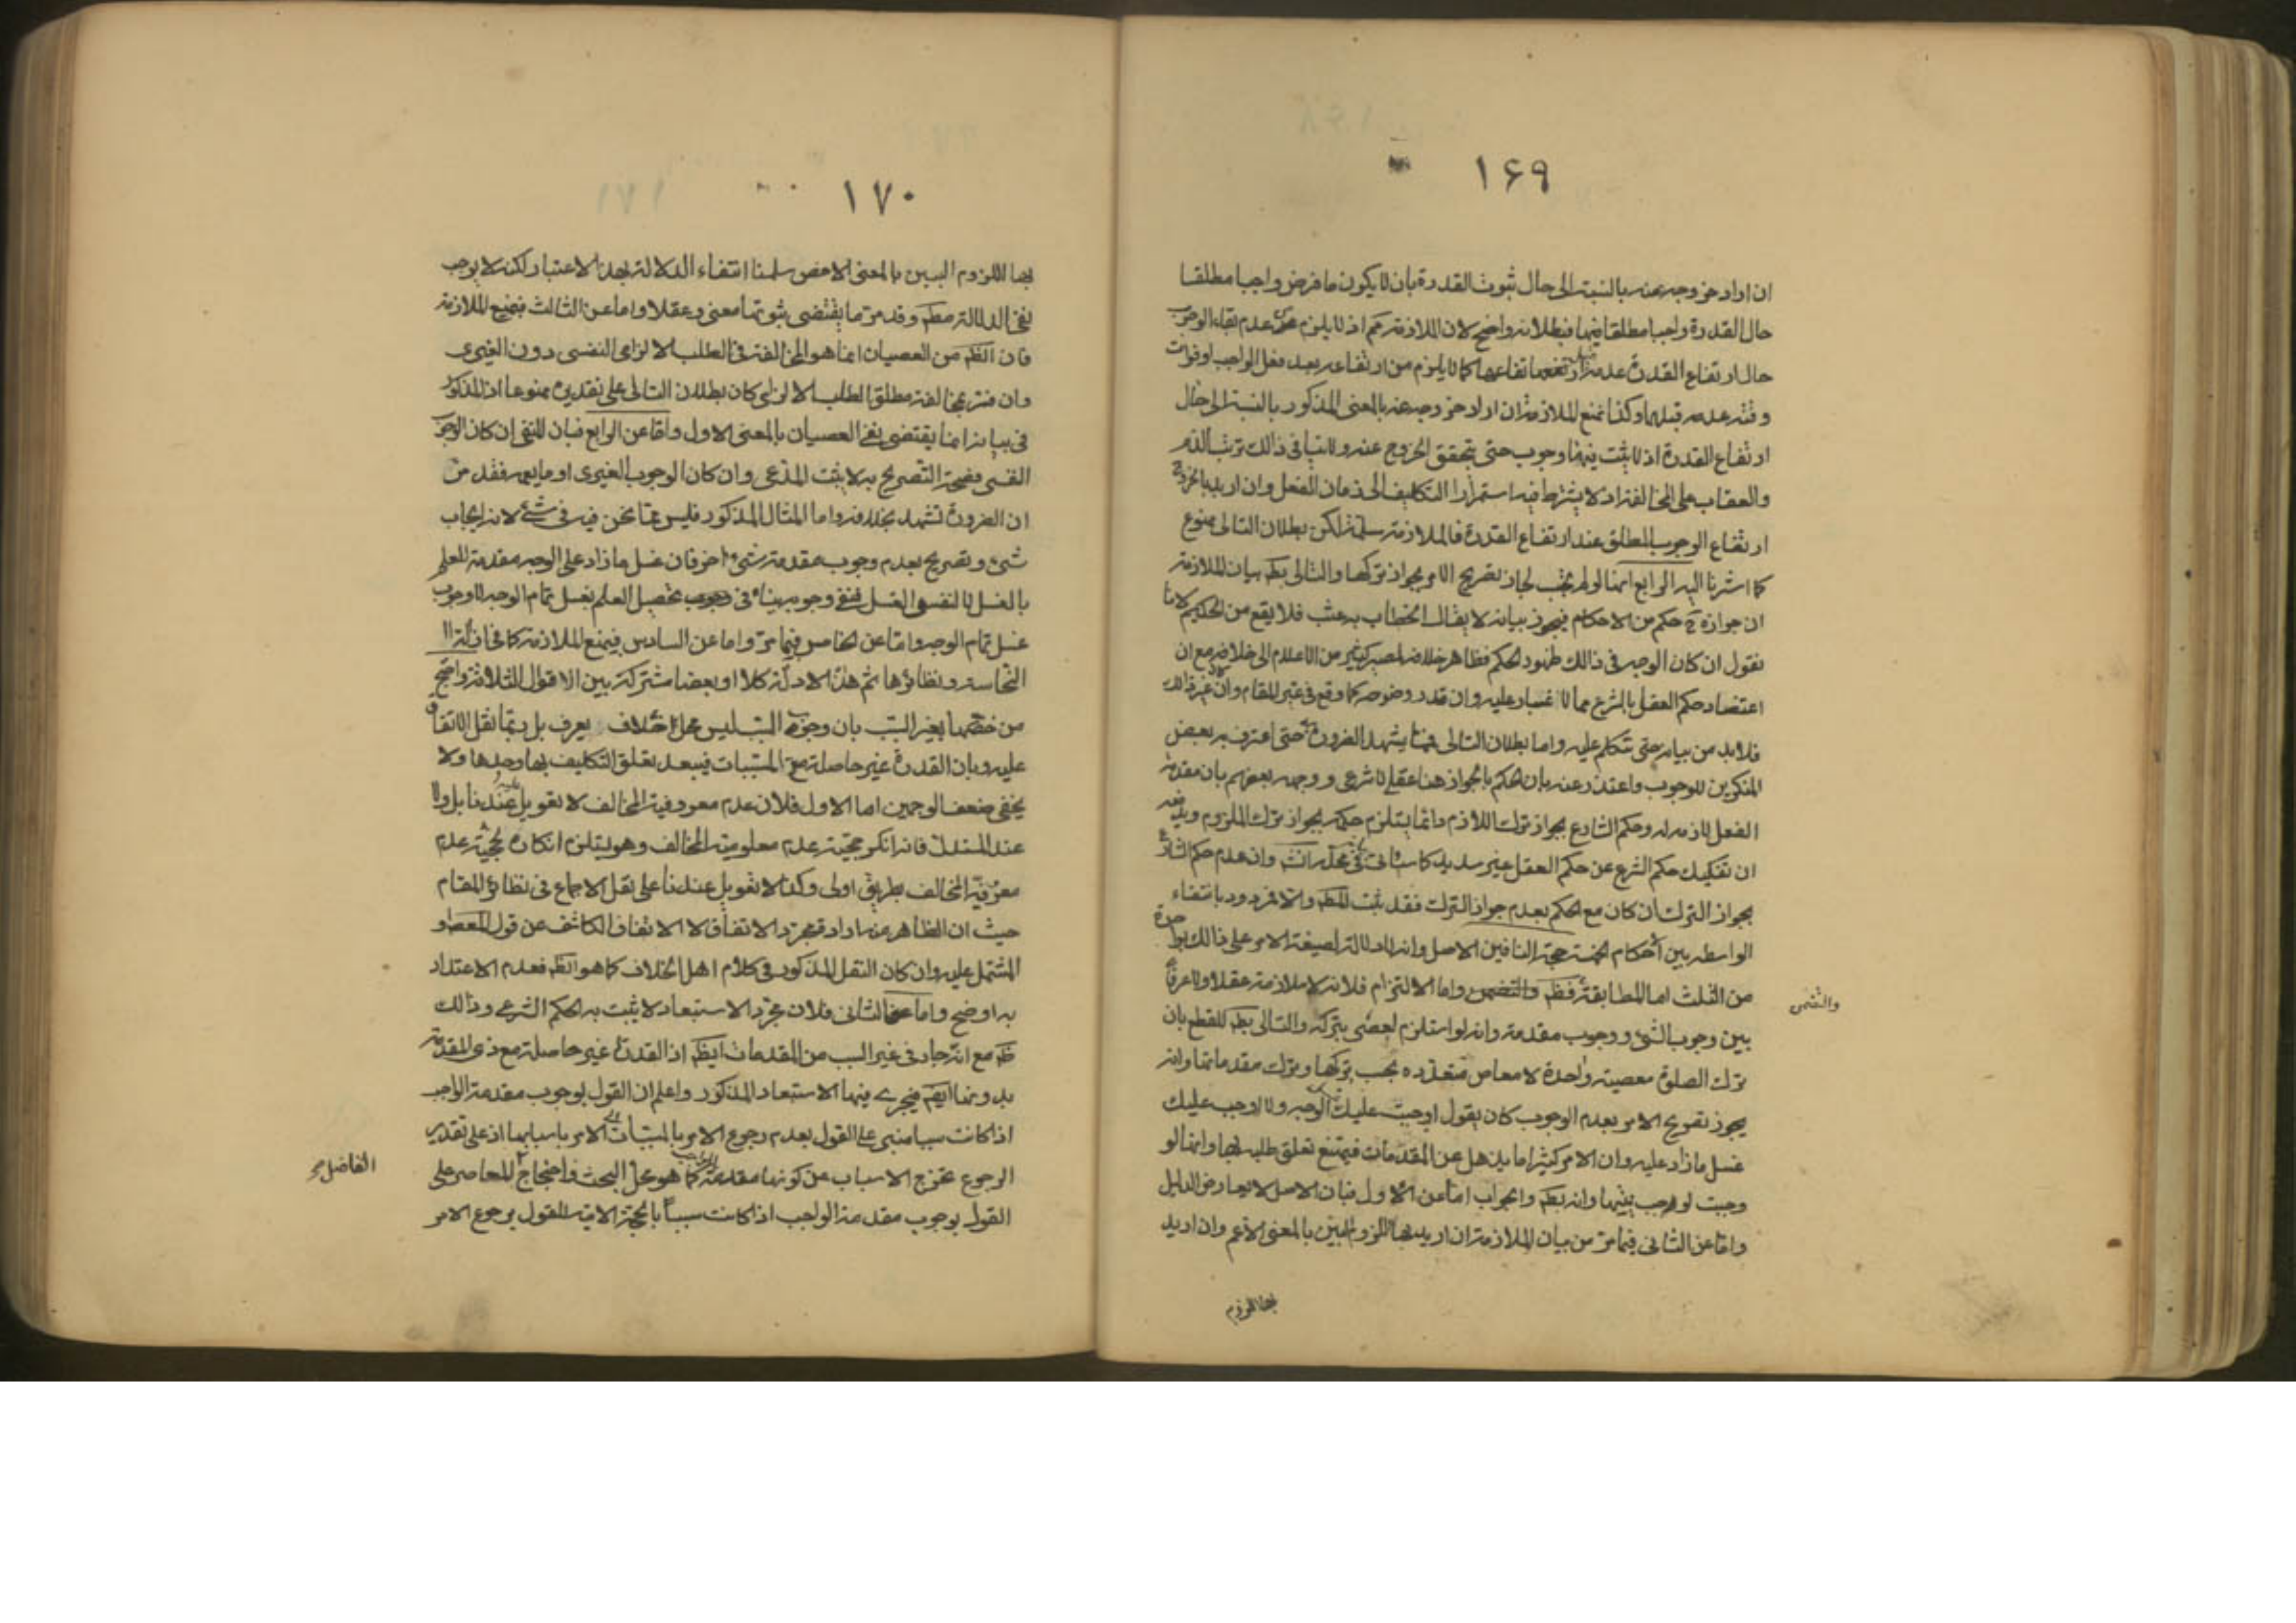 ۱۶۹
ان اراد خروجه عنه بالنسبة الى حال ثبوت القدرة بان لا يكون ما فرض واجبا مطلقا
حال القدرة واجبا مطلقا فيها فبطلانه واضح لان الملازمة اذ لا يلزم من عدم بقاء الوجوب
حال ارتفاع القدرة عدمه قبل ارتفاعها كما لا يلزم من ارتفاعه بعد فعل الواجب او فوات
وقته عدمه قبلهما وكذا نمنع الملازمة ان اراد خروجه عنه بالمعنى المذكور بالنسبة الى حال
ارتفاع القدرة اذ لا يثبت فيها وجوب حتى يتحقق الخروج عنه ولا ينافى ذلك ترتب الذم
والعقاب على المخالفة اذ لا يشترط فيه استمرار التكليف الى زمان الفعل وان اريد بالخروج
ارتفاع الوجوب المطلق عند ارتفاع القدرة فالملازمة مسلمة لكن بطلان التالى ممنوع
كما اشرنا اليه الرابع انها لو لم تجب لجاز تصريح الامر بجواز تركها والتالى بط بيان الملازمة
ان جوازه ح حكم من الاحكام فيجوز بيانه لا يقال الخطاب به عبث فلا يقع من الحكيم لانا
نقول ان كان الوجه فى ذلك ظهور الحكم فظاهر خلافه لمصير كثير من الاعلام الى خلافه مع ان
اعتضاد حكم العقل بالشرع مما لا غبار عليه وان قدر وضوحه كما وقع فى غير المقام وان كان غير ذلك
فلا بد من بيانه حتى نتكلم عليه واما بطلان التالى فمما يشهد به الضرورة حتى اعترف به بعض
المنكرين للوجوب واعتذر عنه بان الحكم بالجواز هنا عقلى لا شرعى ووجهه بعضهم بان مقدمة
الفعل لازمة له وحكم الشارع بجواز ترك اللازم دائما يستلزم حكمه بجواز ترك الملزوم ويدفعه
ان تفكيك حكم الشرع عن حكم العقل غير سديد كما سيأتى فى محله انش وان عدم حكم الشارع
بجواز الترك ان كان مع الحكم بعدم جواز الترك فقد ثبت المط والا فمردود بانتفاء
الواسطة بين الاحكام الخمسة حجة النافين الاصل وانه لا دلالة لصيغة الامر على ذلك بواحدة
من الثلث اما المطابقة فظ والتضمن واما الالتزام فلانه لا ملازمة عقلا ولا عرفا
والتضمن
بين وجوب الشئ ووجوب مقدمته وانه لو استلزم لعصى بتركه والتالى بط للقطع بان
ترك الصلوة معصية واحدة لا معاص متعددة بحسب تركها وترك مقدماتها وانه
يجوز تصريح الامر بعدم الوجوب كان يقول اوجبت عليك غسل الوجه ولا اوجب عليك
غسل ما زاد عليه وان الامر كثيرا ما يذهل عن المقدمات فيمتنع تعلق طلبه بها وانها لو
وجبت لوجب نيتها وانه بط والجواب اما عن الاول فبان الاصل لا يعارض الدليل
واما عن الثانى فيما مر من بيان الملازمة ان اريد بها اللزوم البين بالمعنى الاعم وان اريد
بها اللزوم
۱۷۰
بها اللزوم البين بالمعنى الاخص سلمنا انتفاء الدلالة بهذا الاعتبار لكنه لا يوجب
نفى الدلالة مطم وقد مر ما يقتضى ثبوتها معنى وعقلا واما عن الثالث فبمنع الملازمة
فان الظم من العصيان انما هو المخالفة فى الطلب الالزامى النفسى دون الغيرى
وان فسر بمخالفة مطلق الطلب الالزامى كان بطلان التالى على تقديره ممنوعا اذ المذكور
فى بيانه انما يقتضى نفى العصيان بالمعنى الاول واما عن الرابع فبان المنفى ان كان الوجوب
النفسى فصحة التصريح به لا يثبت المدعى وان كان الوجوب الغيرى او ما يعمه فقد مر
ان الضرورة تشهد بخلافه واما المثال المذكور فليس مما نحن فيه فى شئ لانه ايجاب
شئ وتصريح بعدم وجوب مقدمة شئ اخر فان غسل ما زاد على الوجه مقدمة للعلم
بالغسل لا لنفس الغسل فنفى وجوبه ينافى وجوب تحصيل العلم بغسل تمام الوجه لا وجوب
غسل تمام الوجه واما عن الخامس فبما مر واما عن السادس فبمنع الملازمة كما فى ازالة
النجاسة ونظائرها ثم هذه الادلة كلا او بعضا مشتركة بين الاقوال الثلاثة واحتج
من خصها بغير السبب بان وجوب السبب ليس محل خلاف يعرف بل ربما نقل الاتفاق
عليه وبان القدرة غير حاصلة مع المسببات فيبعد تعلق التكليف بها وحدها ولا
يخفى ضعف الوجهين اما الاول فلان عدم معروفية المخالف لا تعويل عليه عندنا بل ولا
عند المستدل فانه انكر حجية عدم معلومية المخالف وهو يستلزم انكاره لحجية عدم
معروفية المخالف بطريق اولى وكذا لا تعويل عندنا على نقل الاجماع فى نظائر المقام
حيث ان الظاهر منه ارادة مجرد الاتفاق لا الاتفاق الكاشف عن قول المعصوم او
المشتمل عليه وان كان النقل المذكور فى كلام اهل الخلاف كما هو الظم فعدم الاعتداد
به اوضح واما عن الثانى فلان مجرد الاستبعاد لا يثبت به الحكم الشرعى وذلك
ظم مع انه جار فى غير السبب من المقدمات ايضم اذ القدرة غير حاصلة مع ذى المقدمة
بدونها ايضم فيجرى فيها الاستبعاد المذكور واعلم ان القول بوجوب مقدمة الواجب
اذا كانت سببا مبنى على القول بعدم رجوع الامر بالمسببات الى الامر باسبابها اذ على تقدير
الرجوع تخرج الاسباب عن كونها مقدمة للواجب كما هو محل البحث واحتجاج للمعاصر على
الفاضل
القول بوجوب مقدمة الواجب اذا كانت سببا بالحجة الاتية للقول برجوع الامر